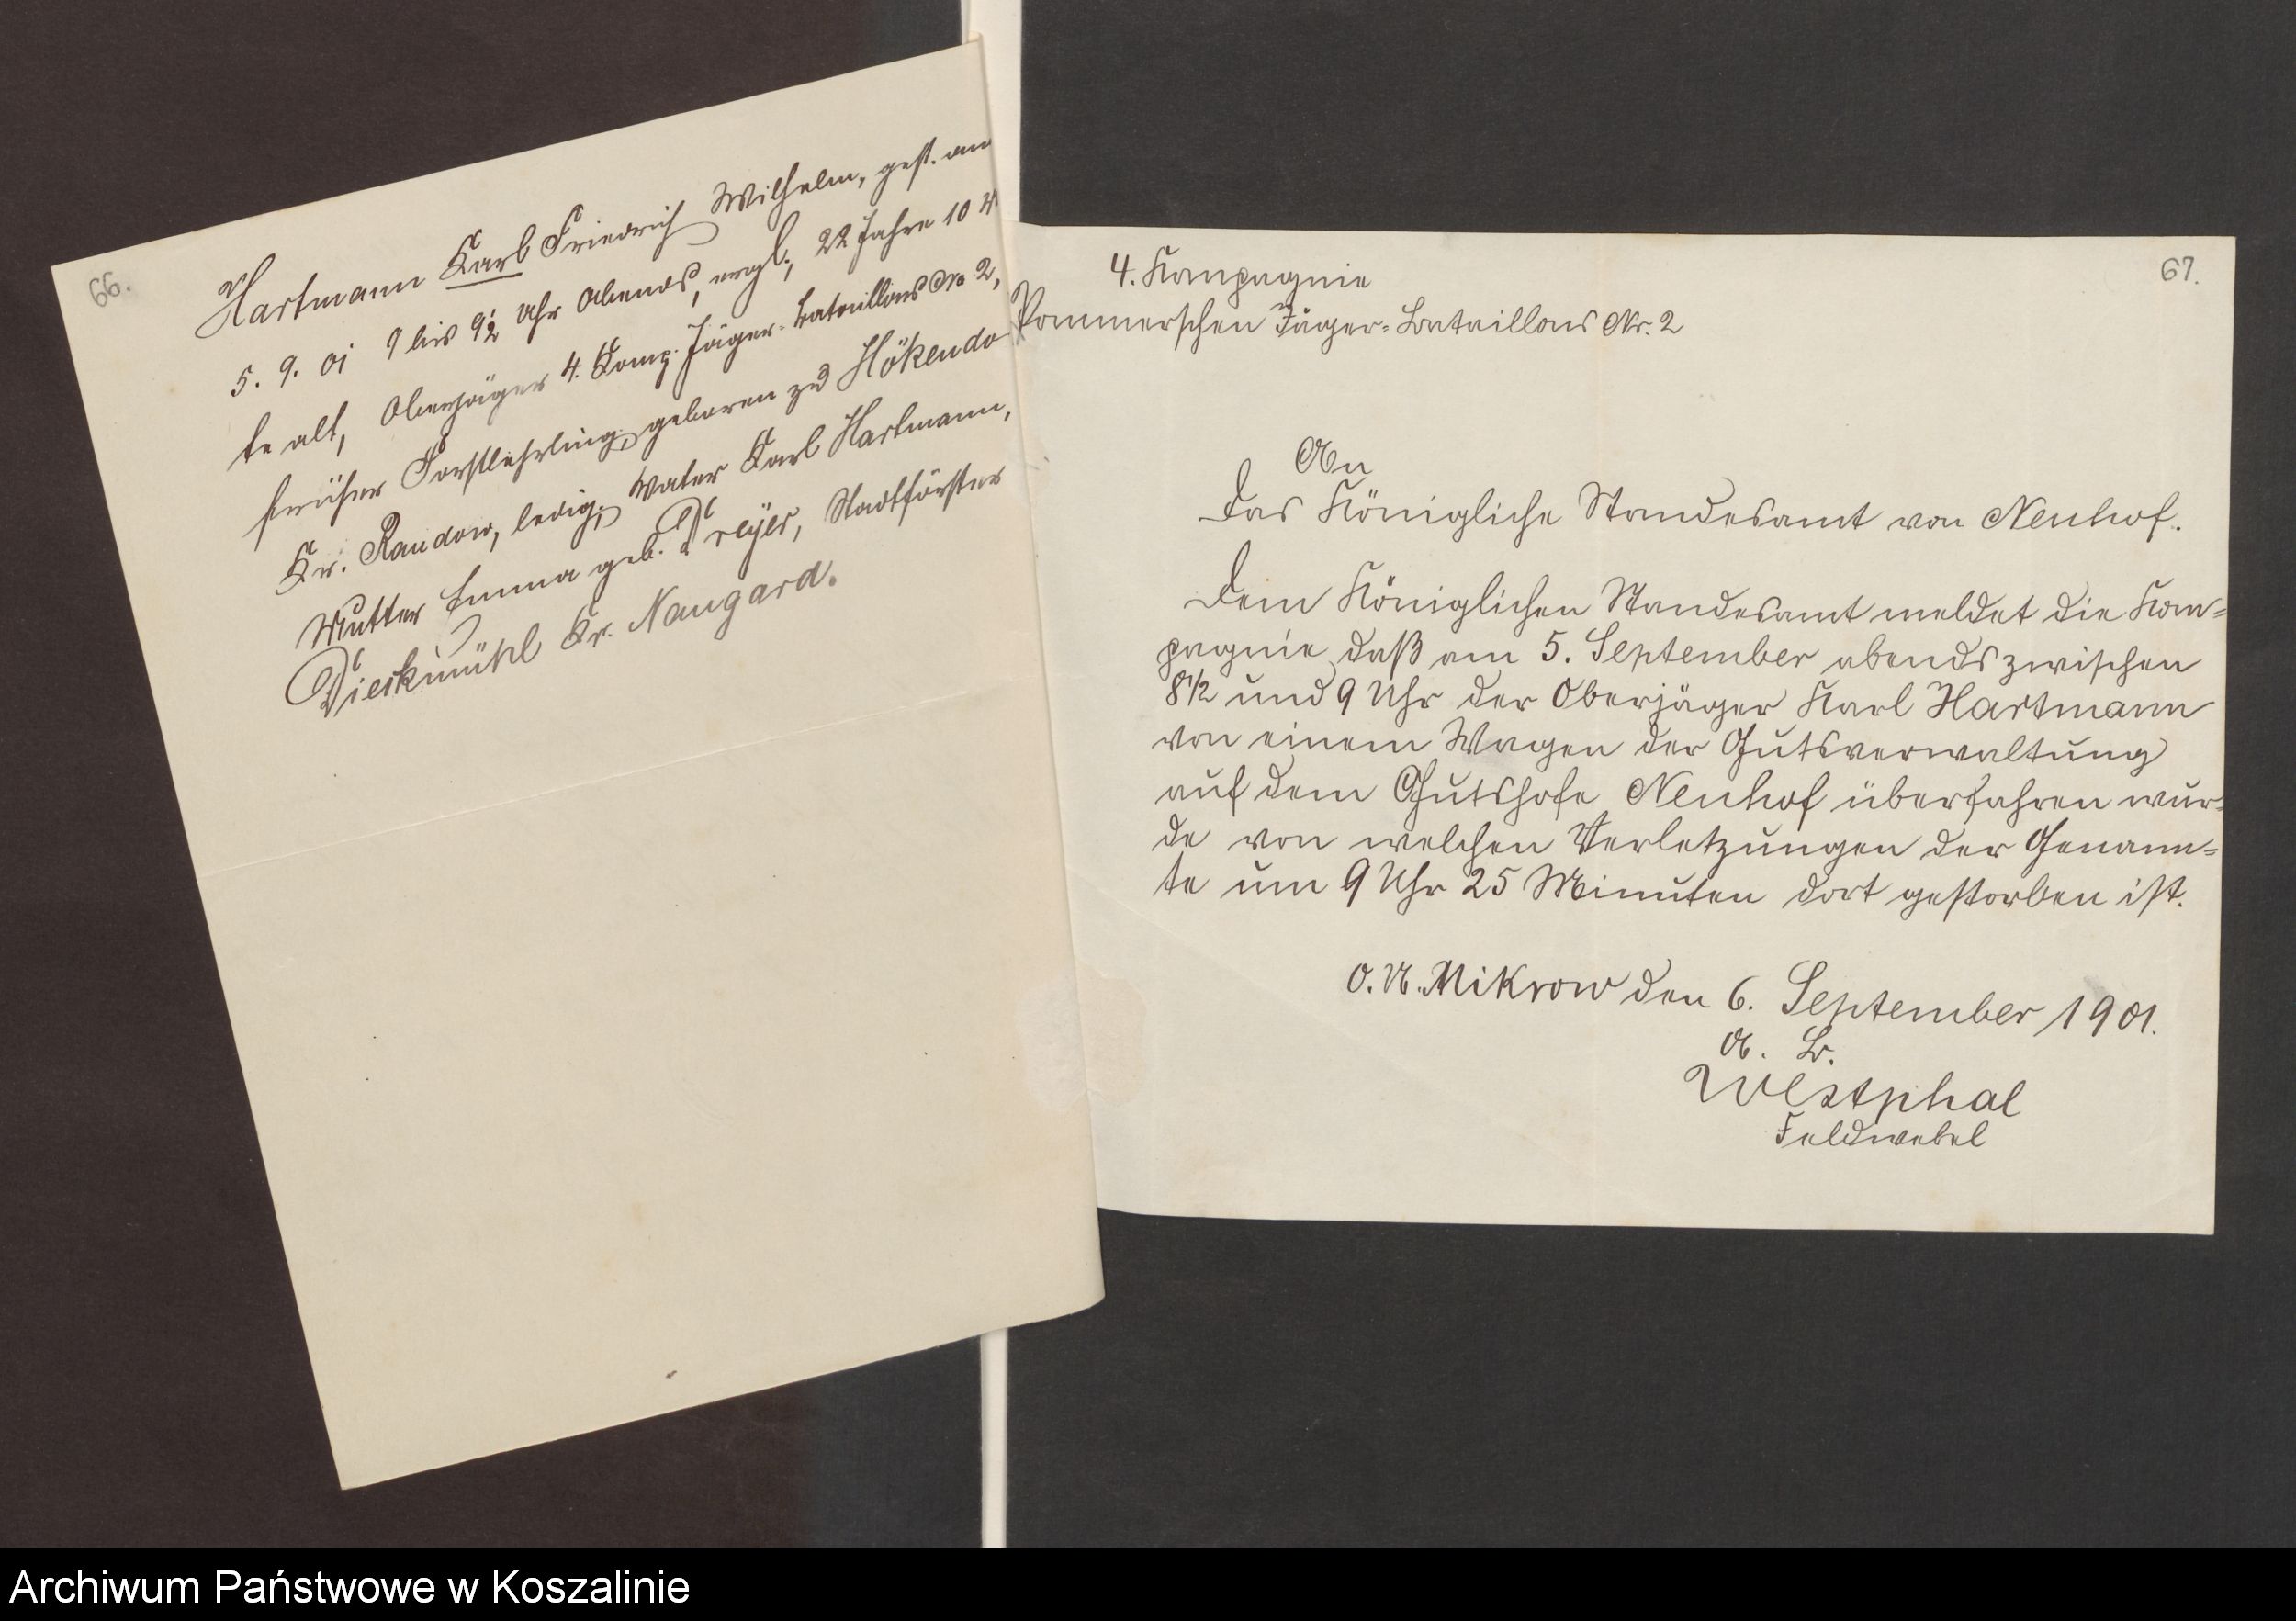 66.
Hartmann Karl Friedrich Wilhelm, gest. am
5. 9. 01 9 bis 9½ Uhr Abends, evgl., 22 Jahre 10 M
te alt, Oberjäger 4. Komp. Jäger-Bataillons No 2,
früher Forstlehrling, geboren zu Hökendo
Kr. Randow, ledig, Vater Karl Hartmann,
Mutter Emma geb. Dreyer, Stadtförster
Kr. Naugard.
67.
4. Kompagnie
Pommerschen Jäger-Bataillons Nr. 2
An
das Königliche Standesamt von Neuhof.
Dem Königlichen Standesamt meldet die Kom-
pagnie, daß am 5. September abends zwischen
8½ und 9 Uhr der Oberjäger Karl Hartmann
von einem Wagen der Gutsverwaltung
auf dem Gutshofe Neuhof überfahren wur-
de von welchen Verletzungen der Genann-
te um 9 Uhr 25 Minuten dort gestorben ist.
O. U. Mikrow den 6. September 1901.
A. B.
Westphal
Feldwebel
Archiwum Państwowe w Koszalinie